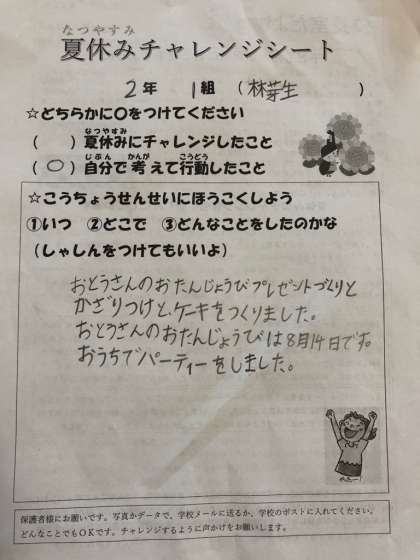 なつやすみ
夏休みチャレンジシート
2年 1組 (林芽生 )
☆どちらかに〇をつけてください
なつやすみ
( )夏休みにチャレンジしたこと
じぶん かんが こうどう
(〇)自分で考えて行動したこと
☆こうちょうせんせいにほうこくしよう
①いつ ②どこで ③どんなことをしたのかな
(しゃしんをつけてもいいよ)
おとうさんのおたんじょうびプレゼントづくりと
かざりつけと、ケーキをつくりました。
おとうさんのおたんじょうびは8月14日です。
おうちでパーティーをしました。
保護者様にお願いです。写真かデータで、学校メールに送るか、学校のポストに入れてください。
どんなことでもOKです。チャレンジするように声かけをお願いします。